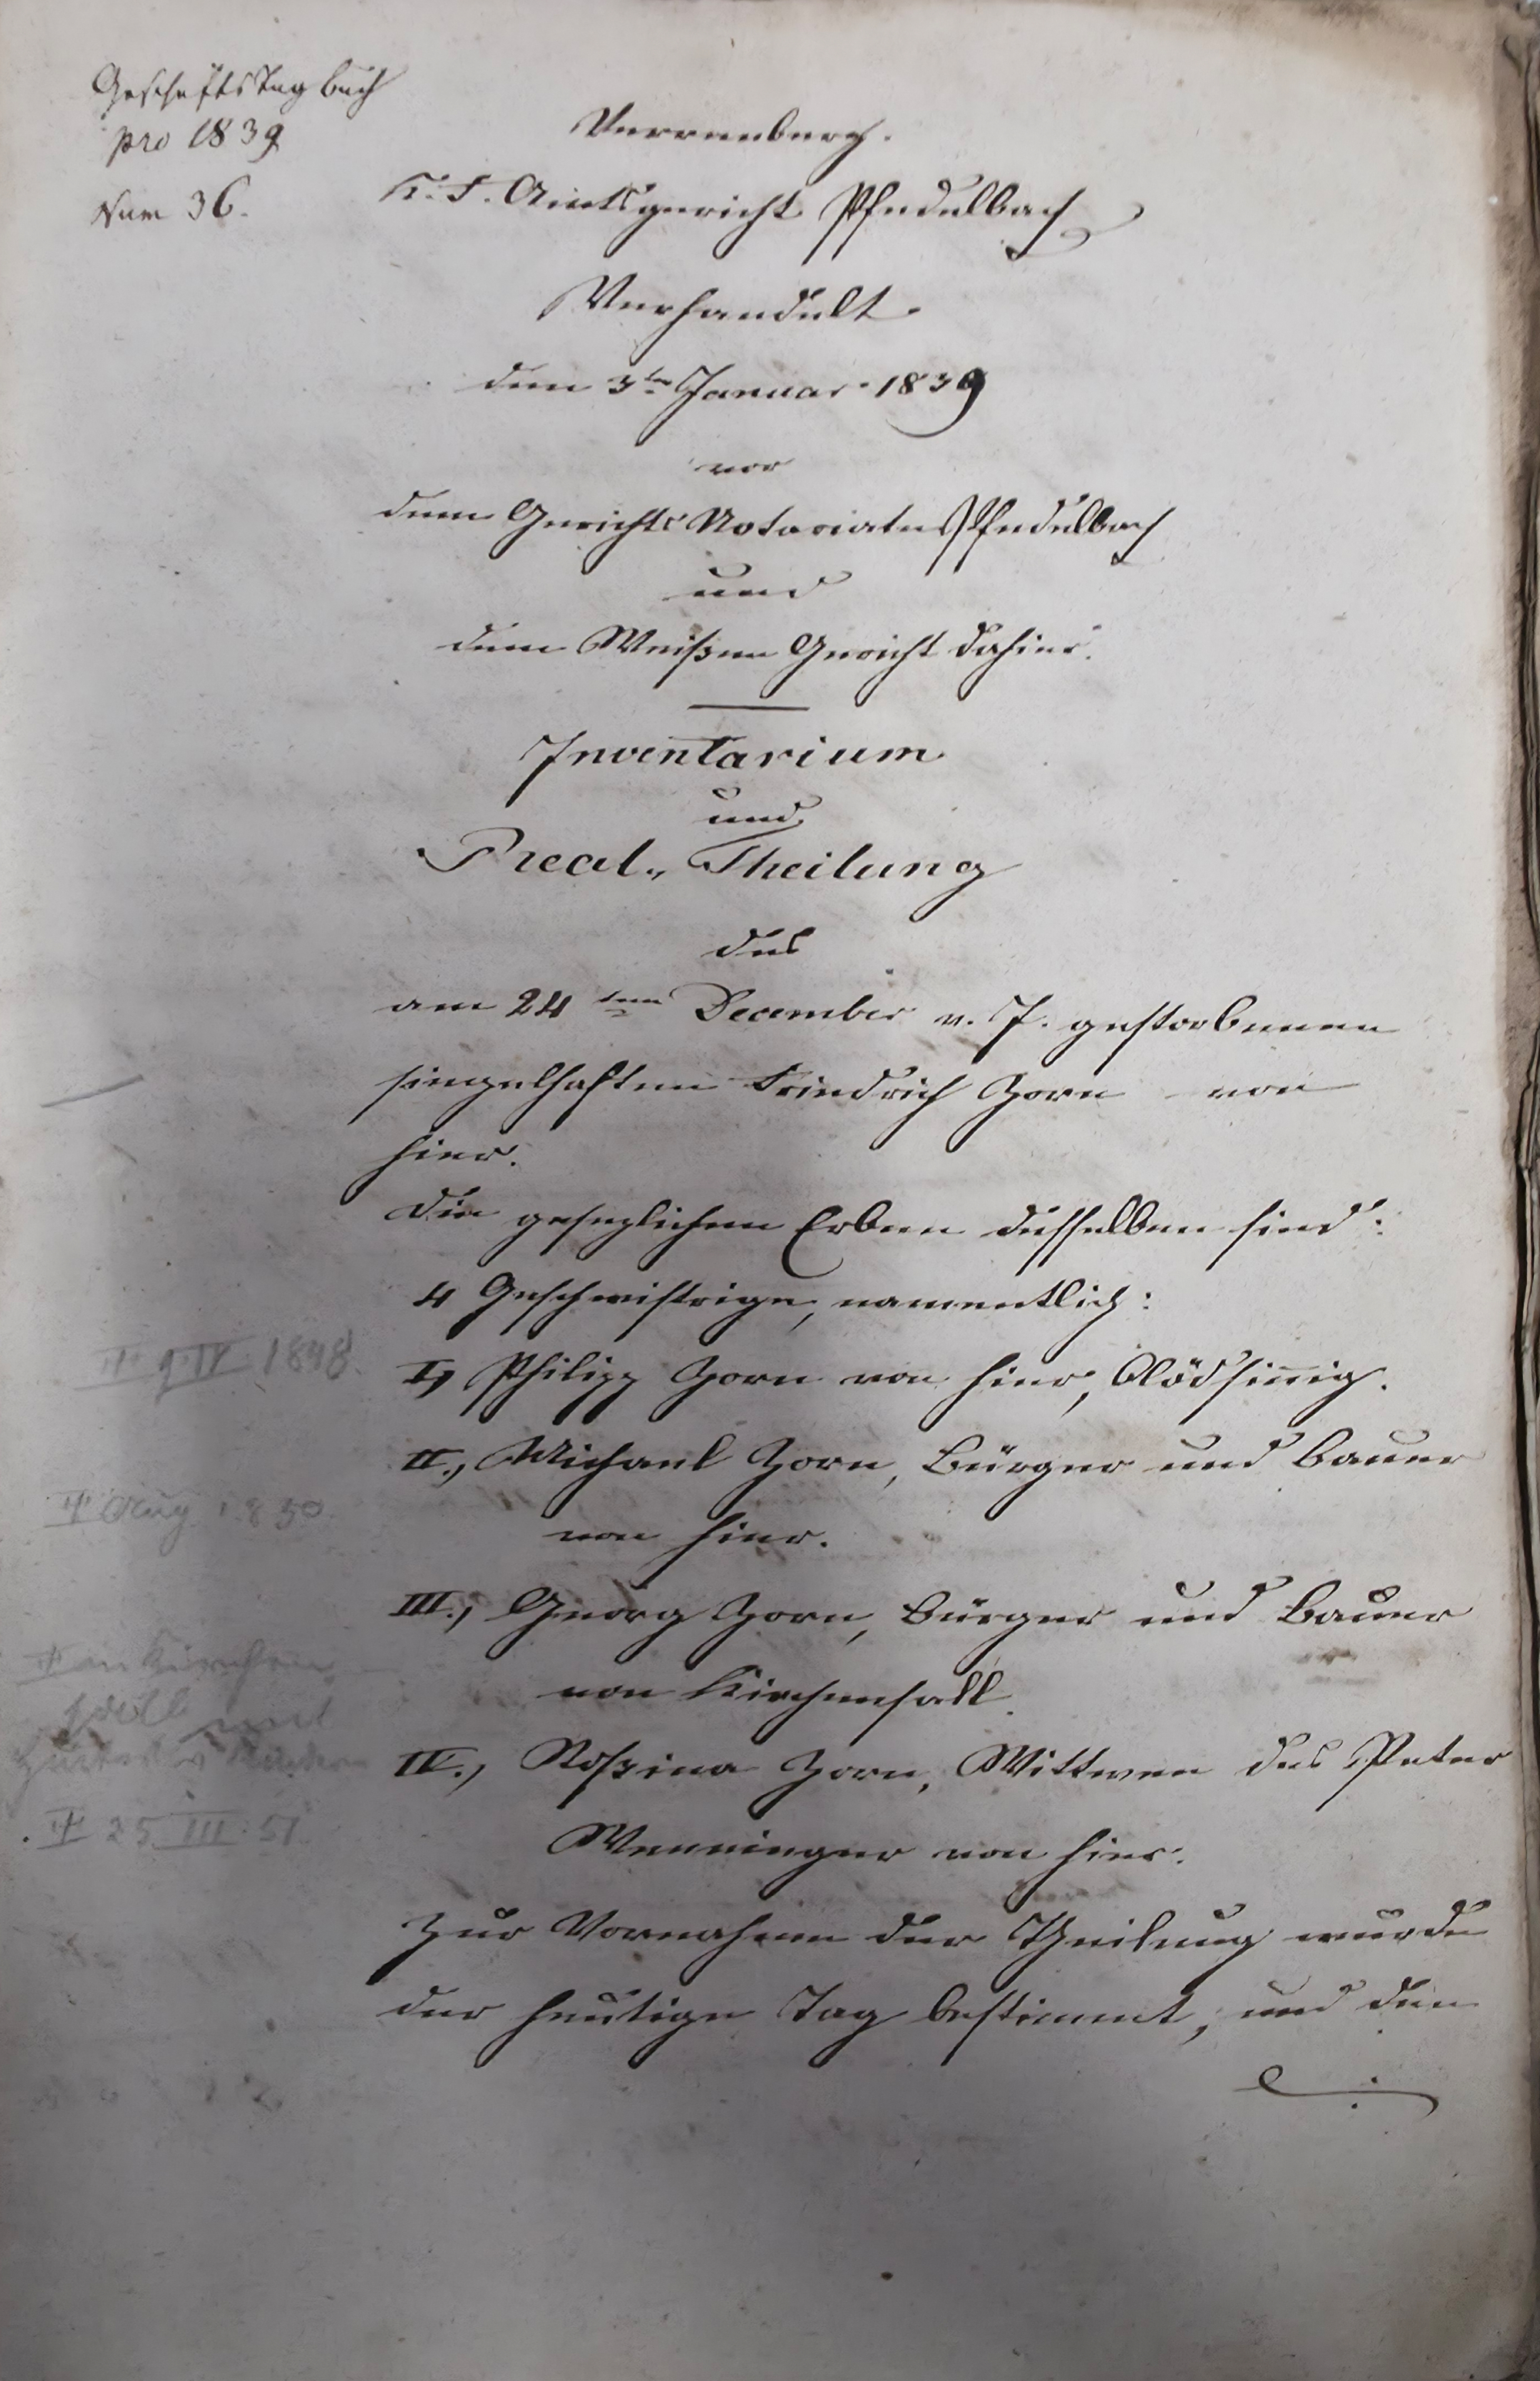 Geschäfts Tag buch
pro 1839
Num 36.
Verrenberg.
K. F. Amtsgericht Pfedelbach
Verhandelt
den 3ten Januar 1839
vor
dem Gerichts Notariate Pfedelbach
und
dem Waißen Gericht dahier.
Inventarium
und
Real-Theilung
des
am 24ten December v. J. gestorbenen
hingelhaften Friedrich Zorn von
hier.
Die gesezlichen Erben desselben sind:
4 Geschwistrige, namentlich:
I., Philipp Zorn von hier, blödsinnig.
II., Michael Zorn, Bürger und Bauer
von hier.
III., Georg Zorn, Bürger und Bauer
von Kirchensall.
IV., Rosina Zorn, Wittwe des Peter
Wenninger von hier.
Zur Vornahme der Theilung wurde
der heutige Tag bestimmt, und den
† 9. IV. 1848.
† Aug 1850
† in Kirchen
sall
† 25. III. 51